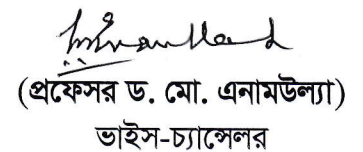 (প্রফেসর ড. মো. এনামউল্যা)
ভাইস-চ্যান্সেলর